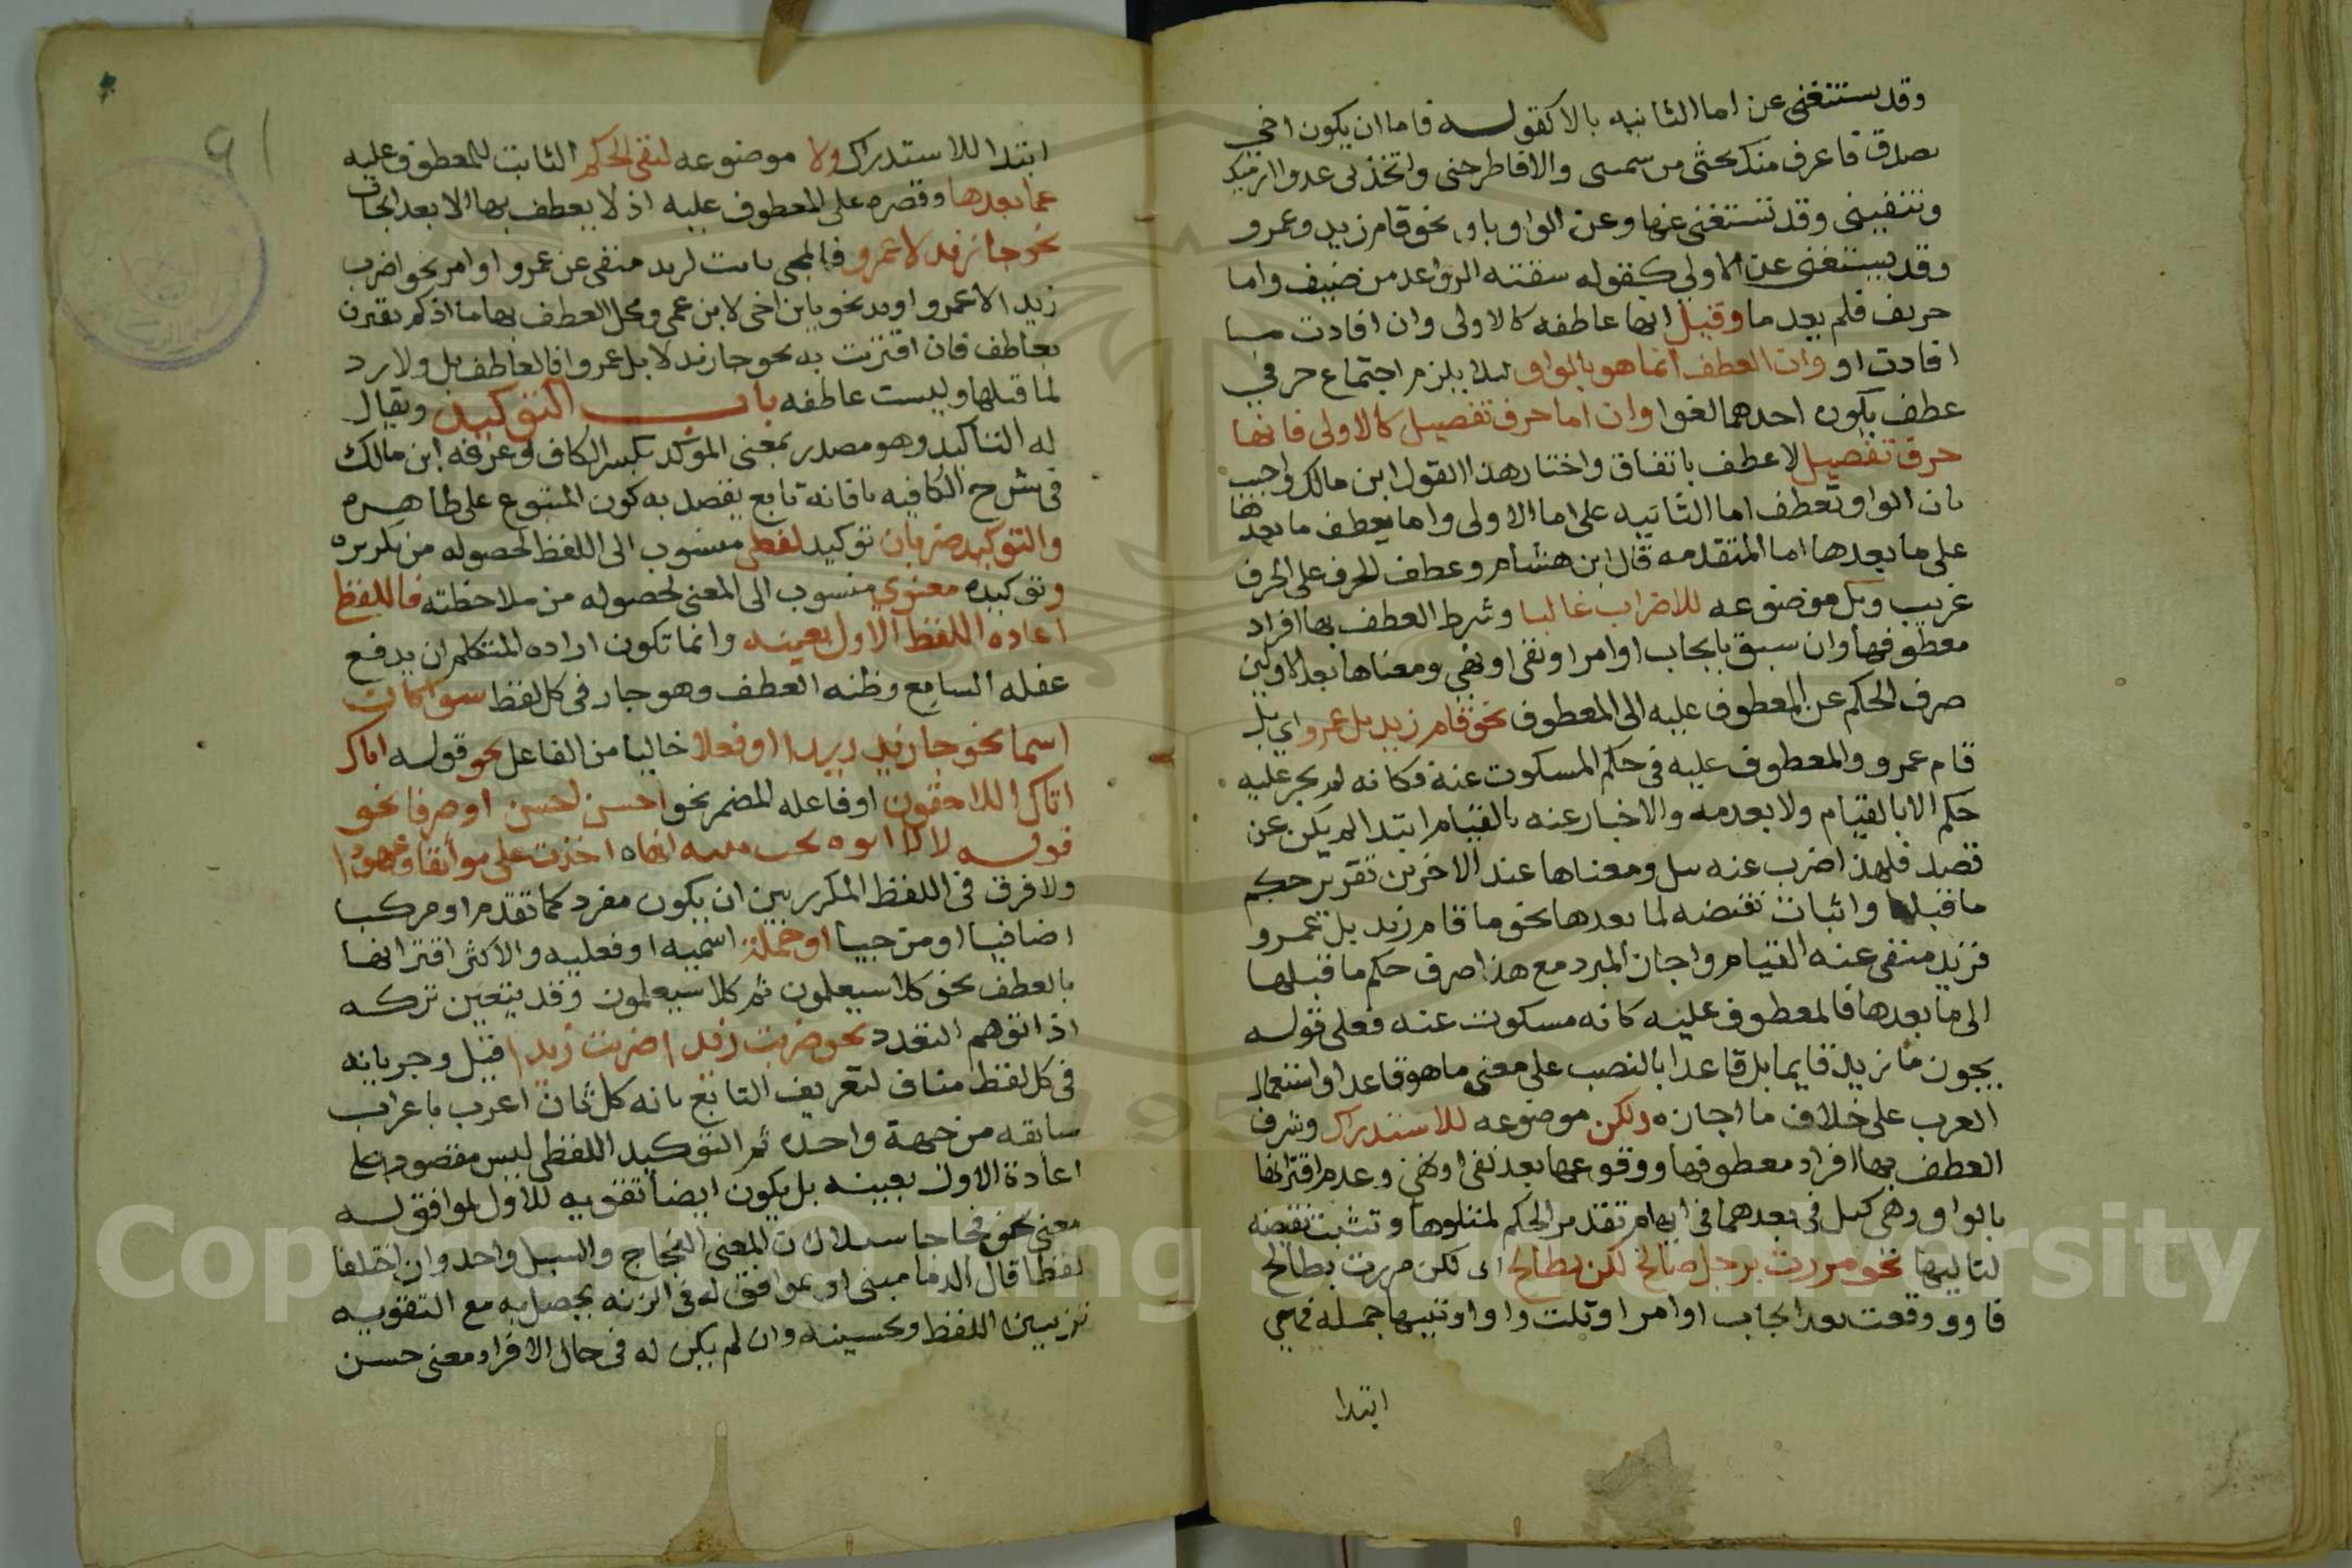 وقد يستغنى عن اما الثانيه بالا كقوله فاما ان يكون اخي
بصدق فاعرف منك غثى من سمسى والا فاطرحنى واتخذنى عدوا اتقيك
وتتقينى وقد تستغنى عنها وعن الواو باو نحو قام زيد وعمرو
وقد يستغنى عن الاولى كقوله سقته الرواعد من ضيف واما
حريف فلم يعدما وقيل انها عاطفه كالاولى وان افادت مسا
افادت او وان العطف انما هو بالواو ليلا يلزم اجتماع حرفي
عطف يكون احدهما لغوا وان اما حرف تفصيل كالاولى فانها
حرف تفصيل لا عطف باتفاق واختار هذا القول ابن مالك واجيب
بان الواو تعطف اما الثانيه على اما الاولى واما يعطف ما بعدها
على ما بعدها اما المتقدمه قال ابن هشام وعطف الحرف على الحرف
غريب وبل موضوعه للاضراب غالبا وشرط العطف بها افراد
معطوفها وان سبق بايجاب او امر او نفى او نهى ومعناها بعد الاولين
صرف الحكم عن المعطوف عليه الى المعطوف نحو قام زيد بل عمرو اي بل
قام عمرو والمعطوف عليه فى حكم المسكوت عنه فكانه لم يجر عليه
حكم الا بالقيام ولا بعدمه والاخبار عنه بالقيام ابتدا لم يكن عن
قصد فلهذا اضرب عنه ببل ومعناها عند الاخرين تقرير حكم
ما قبلها واثبات نقيضه لما بعدها نحو ما قام زيد بل عمرو
فزيد منتفى عنه القيام واجاز المبرد مع هذا صرف حكم ما قبلها
الى ما بعدها فالمعطوف عليه كانه مسكوت عنه فعلى قوله
يجوز ما زيد قايما بل قاعدا بالنصب على معنى ما هو قاعدا واستعمال
العرب على خلاف ما اجازه ولكن موضوعه للاستدراك وشرف
العطف بها افراد معطوفها ووقوعها بعد نفى او نهى وعدم اقترانها
بالواو وهى كبل فى بعدهما فى ايهام تقدير الحكم لمتلوها وتثبت نقيضه
لتاليها نحو مررت برجل صالح لكن بطالح اى لكن مررت بطالح
فاوو وقعت بعد ايجاب او امر او تلت واوا او تليها جمله فهي
ابتدا
ابتدا للاستدراك ولا موضوعه لنفى الحكم الثابت للمعطوف عليه
عما بعدها وقصره على المعطوف عليه اذ لا يعطف بها الا بعد ايجاب
نحو جا زيد لا عمرو فالمجى ثابت لزيد منفى عن عمرو او امر نحو اضرب
زيدا لا عمرو او ندا نحو يابن اخى لابن عمى ومحل العطف بها ما اذا لم تقترن
بعاطف فان اقترنت به نحو جا زيد لا بل عمرو فالعاطف بل ولا رد
لما قبلها وليست عاطفه باب التوكيد ويقال
له التاكيد وهو مصدر بمعنى المؤكد بكسر الكاف وعرفه ابن مالك
فى شرح الكافيه بانه تابع يقصد به كون المتبوع على ظاهره
والتوكيد ضربان توكيد لفظي منسوب الى اللفظ لحصوله من تكريره
وتوكيده معنوي منسوب الى المعنى لحصوله من ملاحظته فاللفظ
اعاده اللفظ الاول بعينه وانما تكون اراده المتكلم ان يدفع
غفله السامع وظنه العطف وهو جار فى كل لفظ سوا كان
اسما نحو جا زيد زيدا او فعلا خاليا من الفاعل نحو قوله اتاك
اتاك اللاحقون او فاعله المضمر نحو احسن احسن او حرفا نحو
قوله لا لا ابوه بحب بثنه انها اخذت على مواثقا وعهودا
ولا فرق فى اللفظ المكرر بين ان يكون مفرد كما تقدم او مركب
اضافيا او مزجيا او جملة اسميه او فعليه والاكثر اقترانها
بالعطف نحو كلا سيعلمون ثم كلا سيعلمون وقد يتعين تركه
اذا توهم التعدد نحو ضربت زيدا ضربت زيدا قيل وجريانه
فى كل لفظ مناف لتعريف التابع بانه كل ثان اعرب باعراب
سابقه من جهة واحده ثم التوكيد اللفظى ليس مقصورا على
اعادة الاول بعينه بل يكون ايضا تقويه للاول لموافق له
معنى نحو فجاجا سبلا لان المعنى الفجاج والسبل واحد وان اختلفا
لفظا قال الدماميني او بموافق له فى الزنه يحصل به مع التقويه
تزيين اللفظ وتحسينه وان لم يكن له فى حال الافراد معنى حسن